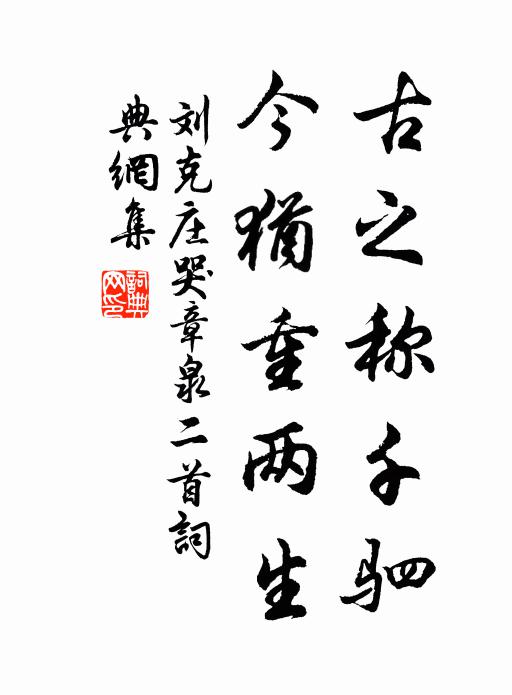 古之称千驷
今猶重两生
刘克庄哭章泉二首詞
典網集
詞典
网印